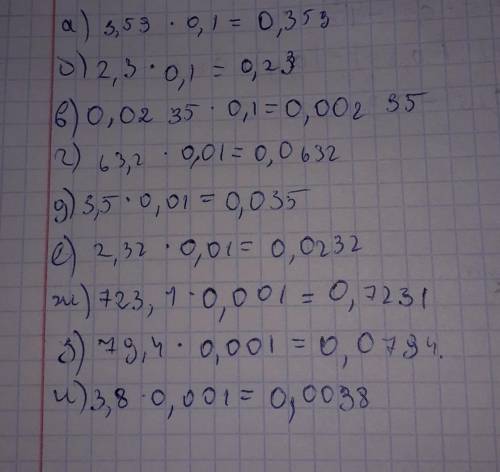 а) 3,53 · 0,1 = 0,353
б) 2,3 · 0,1 = 0,23
в) 0,02 35 · 0,1 = 0,002 35
г) 63,2 · 0,01 = 0,0632
д) 3,5 · 0,01 = 0,035
е) 2,32 · 0,01 = 0,0232
ж) 723,1 · 0,001 = 0,7231
з) 79,4 · 0,001 = 0,0794.
и) 3,8 · 0,001 = 0,0038